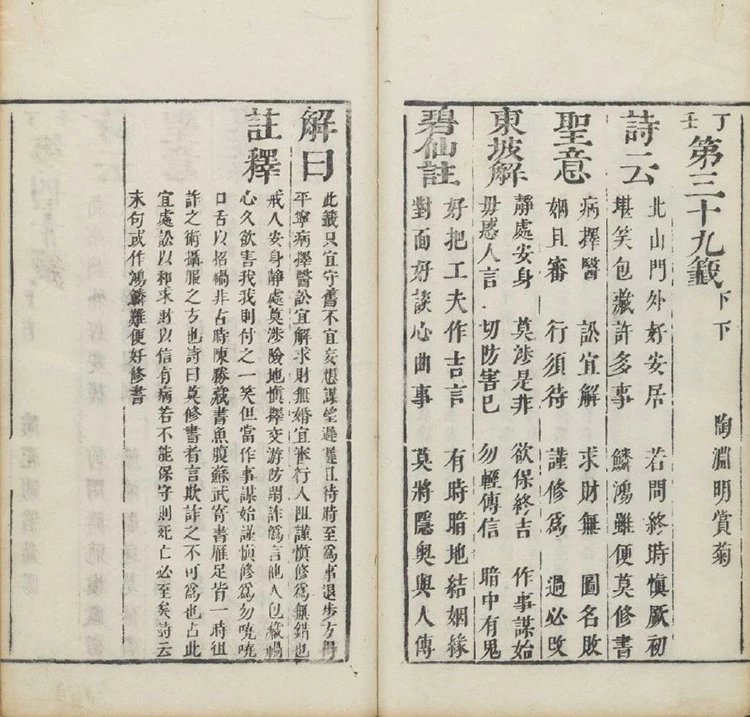 丁壬 第三十九籤 下下 陶淵明賞菊
詩云
北山門外好安居 若問終時慎厥初
堪笑包藏許多事 鱗鴻雖便莫修書
聖意
病擇醫 訟宜解 求財無 圖名敗
婣且審 行須待 謹修為 過必改
東坡解
靜處安身 莫涉是非 欲保終吉 作事謀始
毋惑人言 切防害己 勿輕傳信 暗中有鬼
碧仙註
好把工夫作吉言 有時暗地結姻緣
對面好談心曲事 莫將隱奧與人傳
解曰
此籤只宜守舊不宜妄想謀望遲遲且待時至為事退步方得
平寧病擇醫訟宜解求財無婚宜審行人阻謹慎修為無錯也
註釋
戒人安身靜處莫涉險地慎擇交游防閑詐偽言詭人包藏禍
心久欲害我我則付之一笑但當作事謀始謹慎修為勿嘵嘵
口舌以招禍非占時陳勝藏書魚腹蘇武寄書雁足皆一時徂
詐之術攝服之方也詩曰莫修書者言欺詐之不可為也占此
宜處訟以和求財以信有病若不能保守則死亡必至矣詩云
末句或作鴻鱗雖便好修書